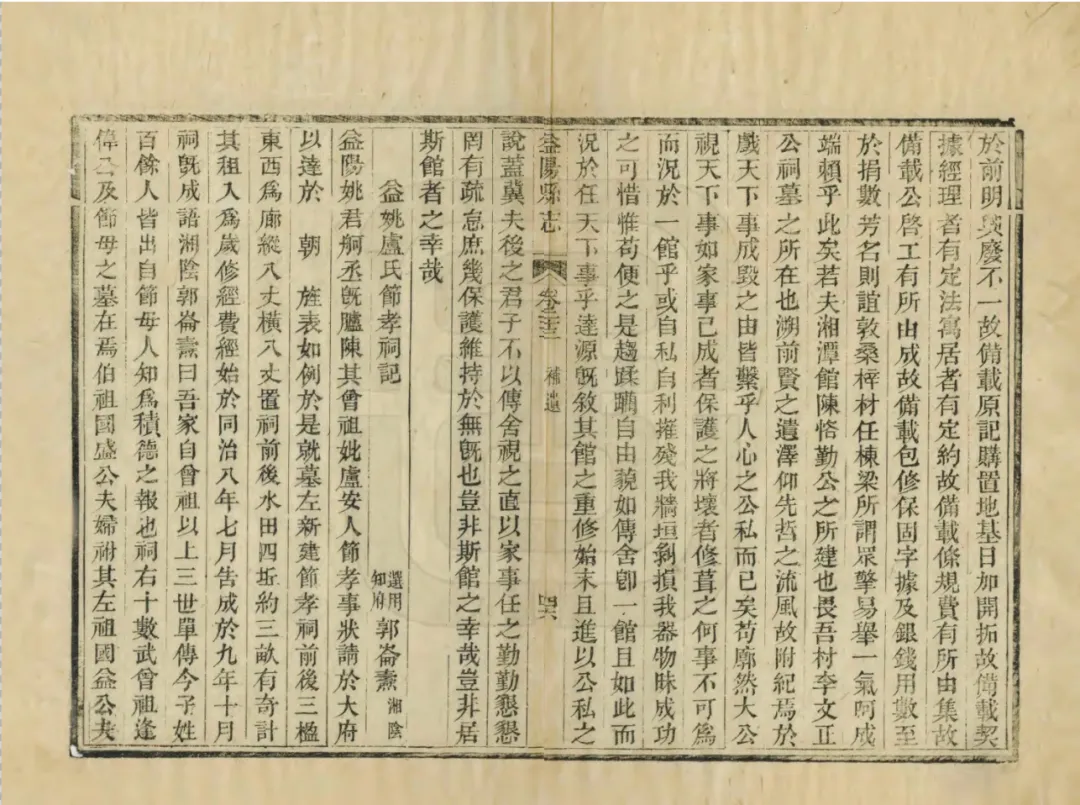 於前明興廢不一故備載原記購置地基日加開拓故備載契
據經理者有定法寓居者有定約故備載條規費有所由集故
備載公啓工有所由成故備載包修保固字據及銀錢用數至
於捐數芳名則誼敦桑梓材任棟梁所謂眾擎易舉一氣呵成
端賴乎此矣若夫湘潭館陳恪勤公之所建也畏吾村李文正
公祠墓之所在也溯前賢之遺澤仰先哲之流風故附紀焉於
戲天下事成毀之由皆繫乎人心之公私而已矣苟廓然大公
視天下事如家事已成者保護之將壞者修葺之何事不可為
而況於一館乎或自私自利摧殘我牆垣剝損我器物昧成功
之可惜惟苟便之是趨蹂躪自由藐如傳舍卽一館且如此而
況於任天下事乎達源旣敘其館之重修始末且進以公私之
益陽縣志 卷 補遺 四六
說蓋冀夫後之君子不以傳舍視之直以家事任之勤勤懇懇
罔有疏怠庶幾保護維持於無旣也豈非斯館之幸哉豈非居
斯館者之幸哉
益姚盧氏節孝祠記 選用知府郭崙燾湘陰
益陽姚君舸丞旣臚陳其曾祖妣盧安人節孝事狀請於大府
以達於 朝 旌表如例於是就墓左新建節孝祠前後三楹
東西爲廊縱八丈橫八丈置祠前後水田四坵約三畝有奇計
其租入爲歲修經費經始於同治八年七月告成於九年十月
祠旣成語湘陰郭崙燾曰吾家自曾祖以上三世單傳今子姓
百餘人皆出自節母人知爲積德之報也祠右十數武曾祖逢
偉公及節母之墓在焉伯祖國盛公夫婦祔其左祖國益公夫